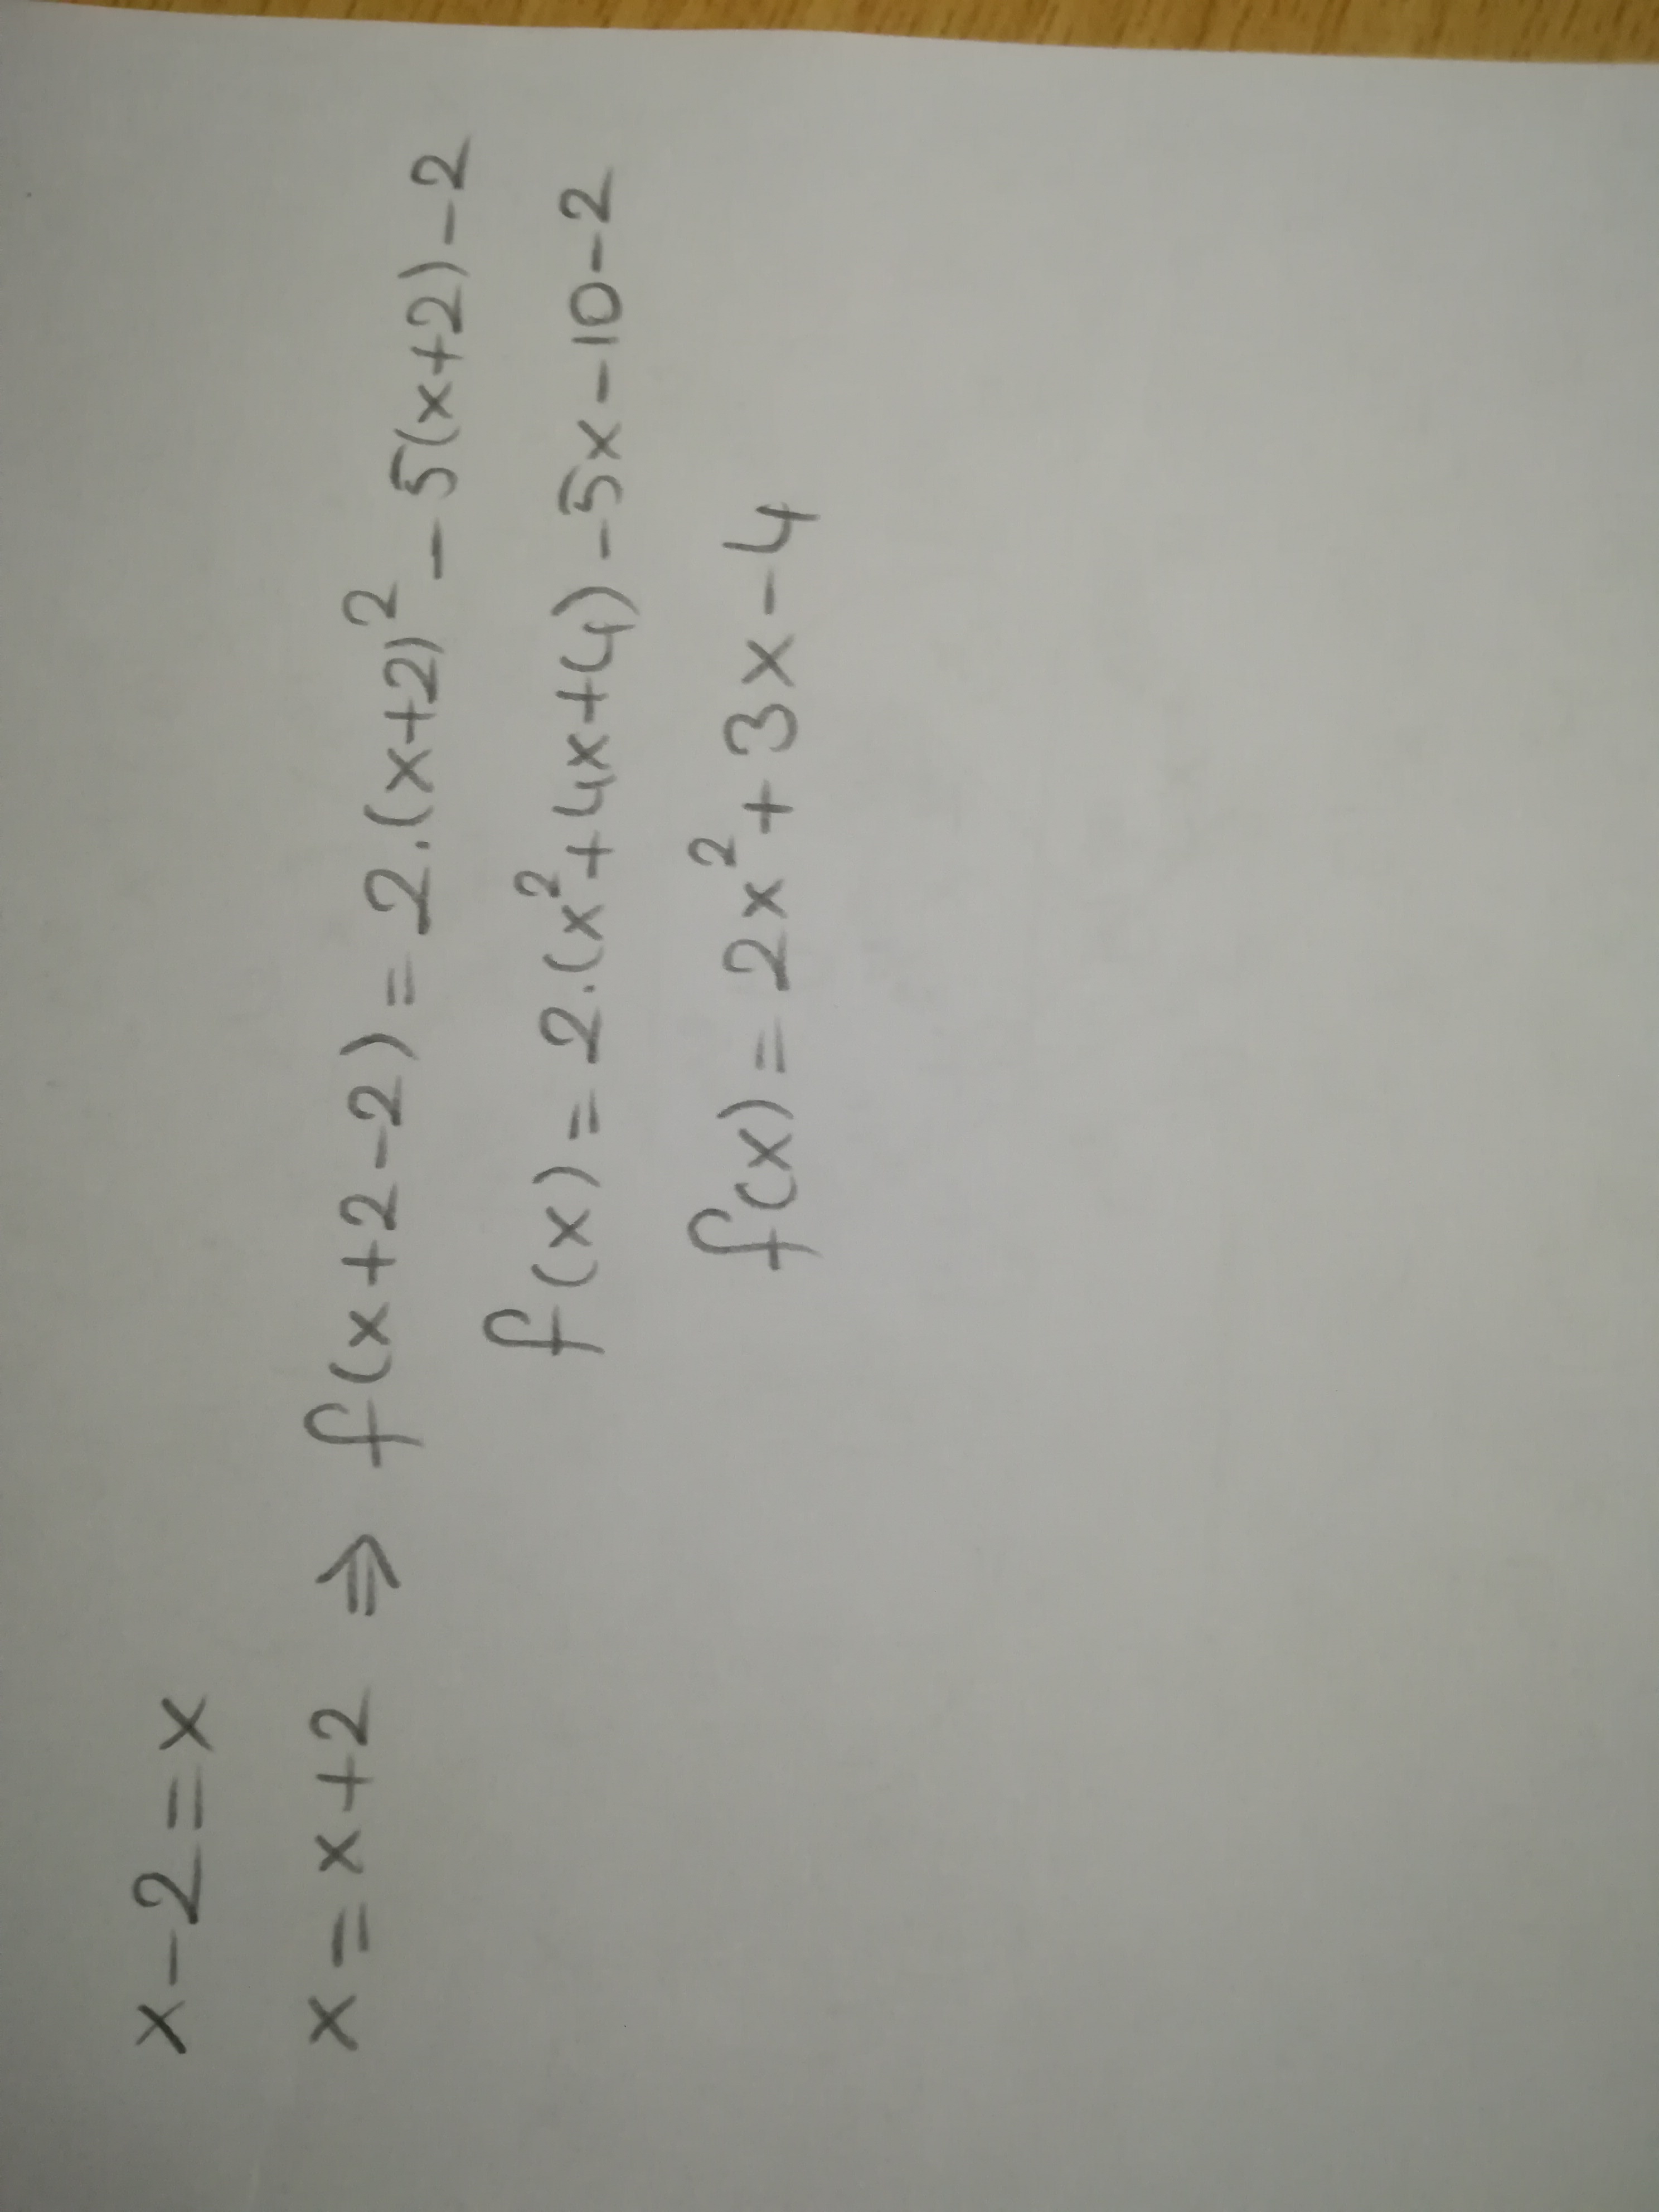 x-2=x
x=x+2 ⇒ f(x+2-2)=2.(x+2)²-5(x+2)-2
f(x)=2.(x²+4x+4)-5x-10-2
f(x)=2x²+3x-4